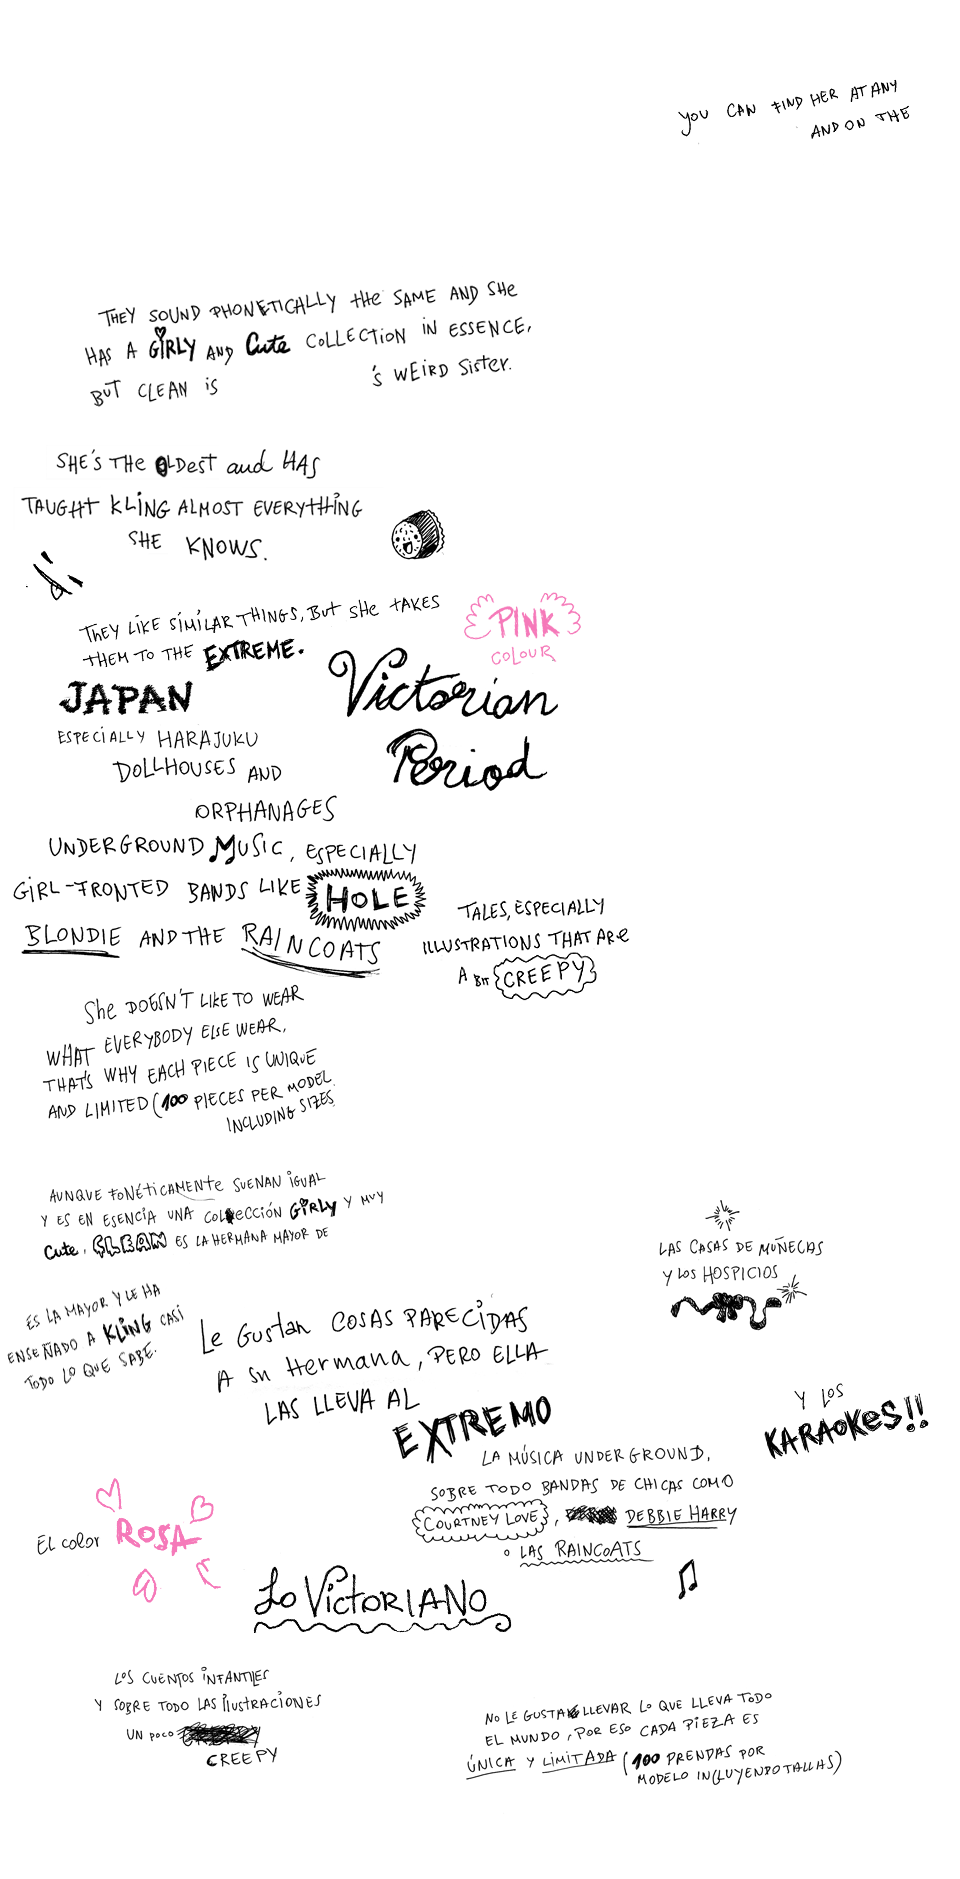 YOU CAN FIND HER AT ANY
AND ON THE
THEY SOUND PHONETICALLY THE SAME AND SHE
HAS A GIRLY AND CUTE COLLECTION IN ESSENCE,
BUT CLEAN IS 'S WEIRD SISTER.
SHE'S THE OLDEST and HAS
TAUGHT KLING ALMOST EVERYTHING
SHE KNOWS.
THEY LIKE SIMILAR THINGS, BUT SHE TAKES
THEM TO THE EXTREME.
PINK
COLOUR
JAPAN
ESPECIALLY HARAJUKU
Victorian
Period
DOLLHOUSES AND
ORPHANAGES
UNDERGROUND MUSIC, ESPECIALLY
GIRL-FRONTED BANDS LIKE HOLE
BLONDIE AND THE RAINCOATS
TALES, ESPECIALLY
ILLUSTRATIONS THAT ARE
A BIT CREEPY
SHE DOESN'T LIKE TO WEAR
WHAT EVERYBODY ELSE WEAR,
THAT'S WHY EACH PIECE IS UNIQUE
AND LIMITED (100 PIECES PER MODEL
INCLUDING SIZES)
AUNQUE FONÉTICAMENTE SUENAN IGUAL
Y ES EN ESENCIA UNA COLECCIÓN GIRLY Y MUY
CUTE, CLEAN ES LA HERMANA MAYOR DE
LAS CASAS DE MUÑECAS
Y LOS HOSPICIOS
ES LA MAYOR Y LE HA
ENSEÑADO A KLING CASI
TODO LO QUE SABE.
Le Gustan COSAS PARECIDAS
A Su Hermana, PERO ELLA
LAS LLEVA AL
EXTREMO
Y LOS
KARAOKES!!
LA MÚSICA UNDERGROUND,
SOBRE TODO BANDAS DE CHICAS COMO
COURTNEY LOVE, DEBBIE HARRY
O LAS RAINCOATS
EL color ROSA
Lo VICTORIANO
LOS CUENTOS INFANTILES
Y SOBRE TODO LAS ILUSTRACIONES
UN POCO
CREEPY
NO LE GUSTA LLEVAR LO QUE LLEVA TODO
EL MUNDO, POR ESO CADA PIEZA ES
ÚNICA Y LIMITADA (100 PRENDAS POR
MODELO INCLUYENDO TALLAS)